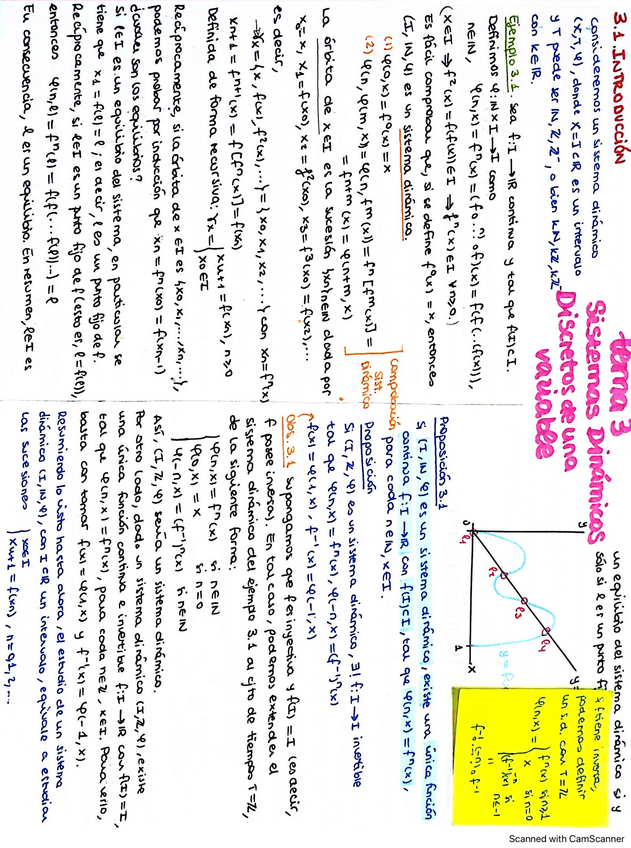 tema 3
Sistemas Dinámicos
Discretos de una
variable
3.1. INTRODUCCIÓN
Consideremos un sistema dinámico
(X,T,φ), donde X=I⊂ℝ es un intervalo
y T puede ser ℕ, ℤ, o bien kℕ, kℤ
con k∈ℝ.
Ejemplo 3.1. Sea f: I → ℝ continua y tal que f(I)⊂I.
Definimos φ: ℕ×I → I como
n∈ℕ, φ(n,x)=fⁿ(x)=(f∘...∘f)(x)=f(f(...(f(x))),
(x∈I ⇒ f²(x)=f(f(x))∈I ⇒ fⁿ(x)∈I ∀n≥0.)
Es fácil comprobar que, si se define f⁰(x)=x, entonces
(I,ℕ,φ) es un sistema dinámico.
(1) φ(0,x)=f⁰(x)=x
(2) φ(n,φ(m,x))=φ(n,fᵐ(x))=fⁿ[fᵐ(x)]=
=fⁿ⁺ᵐ(x)=φ(n+m,x)
Comprobación
sist.
Dinámico
La órbita de x∈I es la sucesión {xn}n∈ℕ dada por
x₀=x, x₁=f(x₀), x₂=f²(x₀), x₃=f³(x₀)=f(x₂),...
es decir,
→γx={x, f(x), f²(x),...}={x₀,x₁,x₂,...} con xn=fⁿ(x)
xn+1=fⁿ⁺¹(x)=f[fⁿ(x)]=f(xn)
Definida de forma recursiva: γx={ xn+1=f(xn), n≥0
x₀∈I
Recíprocamente, si la órbita de x∈I es {x₀,x₁,...,xn,...},
podemos probar por inducción que xn=fⁿ(x₀)=f(xn-1)
¿Cuáles son los equilibrios?
Si ℓ∈I es un equilibrio del sistema, en particular se
tiene que x₁=f(ℓ)=ℓ, es decir, ℓ es un punto fijo de f.
Recíprocamente, si ℓ∈I es un punto fijo de f (esto es, ℓ=f(ℓ)),
entonces φ(n,ℓ)=fⁿ(ℓ)=f(f(...f(ℓ)...)=ℓ
En consecuencia, ℓ es un equilibrio. En resumen, ℓ∈I es
un equilibrio del sistema dinámico si y
sólo si ℓ es un punto
y
ℓ₁
ℓ₂
ℓ₃
ℓ₄
1
x
y=f(
y=
Si f tiene inversa,
podemos definir
un s.d. con T=ℤ
φ(n,x)={ fⁿ(x) si n≥1
x si n=0
(f⁻¹)⁻ⁿ(x) si
n≤-1
f⁻¹∘...(-n)...∘f⁻¹
Proposición 3.1
Si (I,ℕ,φ) es un sistema dinámico, existe una única función
continua f: I → ℝ con f(I)⊂I, tal que φ(n,x)=fⁿ(x),
para cada n∈ℕ, x∈I.
Proposición
Si (I,ℤ,φ) es un sistema dinámico, ∃! f: I → I invertible
tal que φ(n,x)=fⁿ(x), φ(-n,x)=(f⁻¹)ⁿ(x)
f(x)=φ(1,x), f⁻¹(x)=φ(-1,x)
Obs. 3.1 Supongamos que f es inyectiva y f(I)=I (es decir,
f posee inversa). En tal caso, podemos extender el
sistema dinámico del ejemplo 3.1 al cjto de tiempos T=ℤ,
de la siguiente forma:
{ φ(n,x)=fⁿ(x) si n∈ℕ
φ(0,x)=x si n=0
φ(-n,x)=(f⁻¹)ⁿ(x) si n∈ℕ
Así, (I,ℤ,φ) sería un sistema dinámico.
Por otro lado, dado un sistema dinámico (I,ℤ,φ), existe
una única función continua e invertible f: I → ℝ con f(I)=I,
tal que φ(n,x)=fⁿ(x), para cada n∈ℤ, x∈I. Para verlo,
basta con tomar f(x)=φ(1,x) y f⁻¹(x)=φ(-1,x).
Resumiendo lo visto hasta ahora, el estudio de un sistema
dinámico (I,ℕ,φ), con I⊂ℝ un intervalo, equivale a estudiar
las sucesiones { x₀∈I
xn+1=f(xn), n=0,1,2,...
Scanned with CamScanner